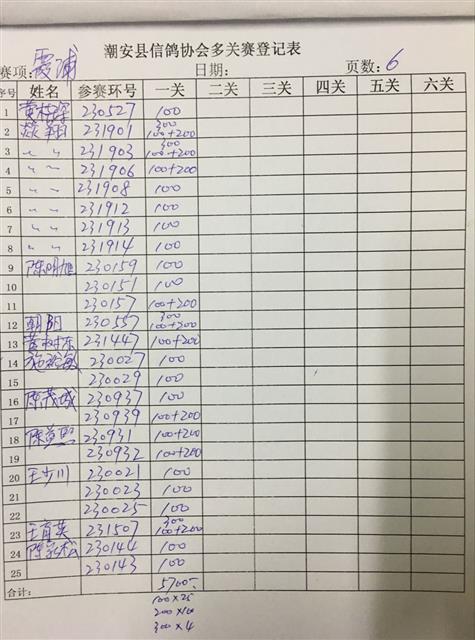 潮安县信鸽协会多关赛登记表
赛项: 霞浦 日期: 页数: 6
序号 姓名 参赛环号 一关 二关 三关 四关 五关 六关
1 230527 100
2 燚翔 231901 300 100+200
3 〃 〃 231903 300 100+200
4 〃 〃 231906 100+200
5 〃 〃 231908 100
6 〃 〃 231912 100
7 〃 〃 231913 100
8 〃 〃 231914 100
9 陈明旭 230159 100
10 230151 100
11 230157 100+200
12 朝阳 230557 300 100+200
13 黄树东 231447 100+200
14 施 敏 230027 100
15 230029 100
16 陈茂城 230937 100
17 230939 100+200
18 陈 230931 100+200
19 230932 100+200
20 王少川 230021 100
21 230023 100
22 230025 100
23 王育英 231507 300 100+200
24 陈 松 230144 100
25 230143 100
合计: 5700
100×25
200×100
300×4